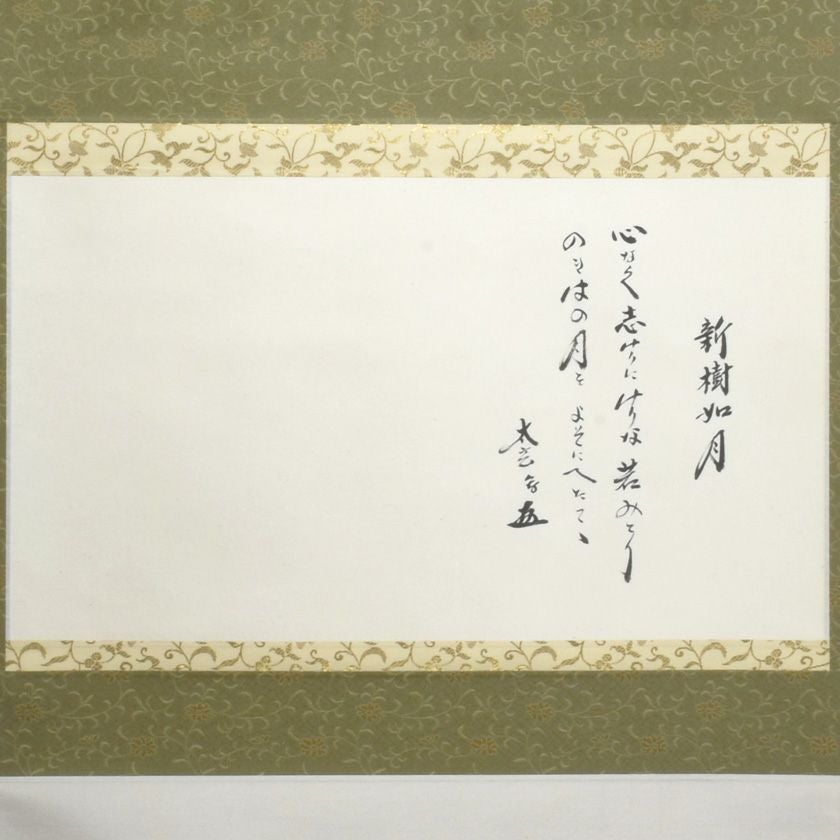 新樹如月
心なく志けりにけりな若みとり
のきはの月をよそにへたてゝ